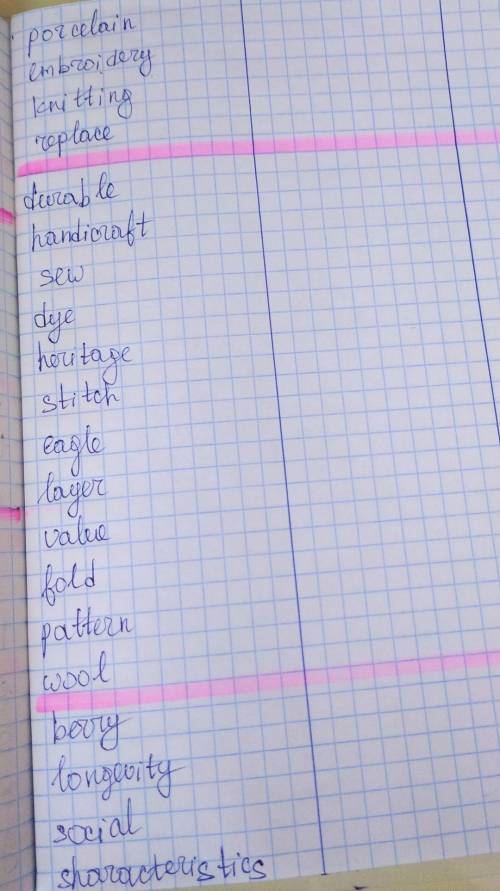 porcelain
embroidery
knitting
replace
durable
handicraft
sew
dye
heritage
stitch
eagle
layer
value
fold
pattern
wool
berry
longevity
social
sharacteristics